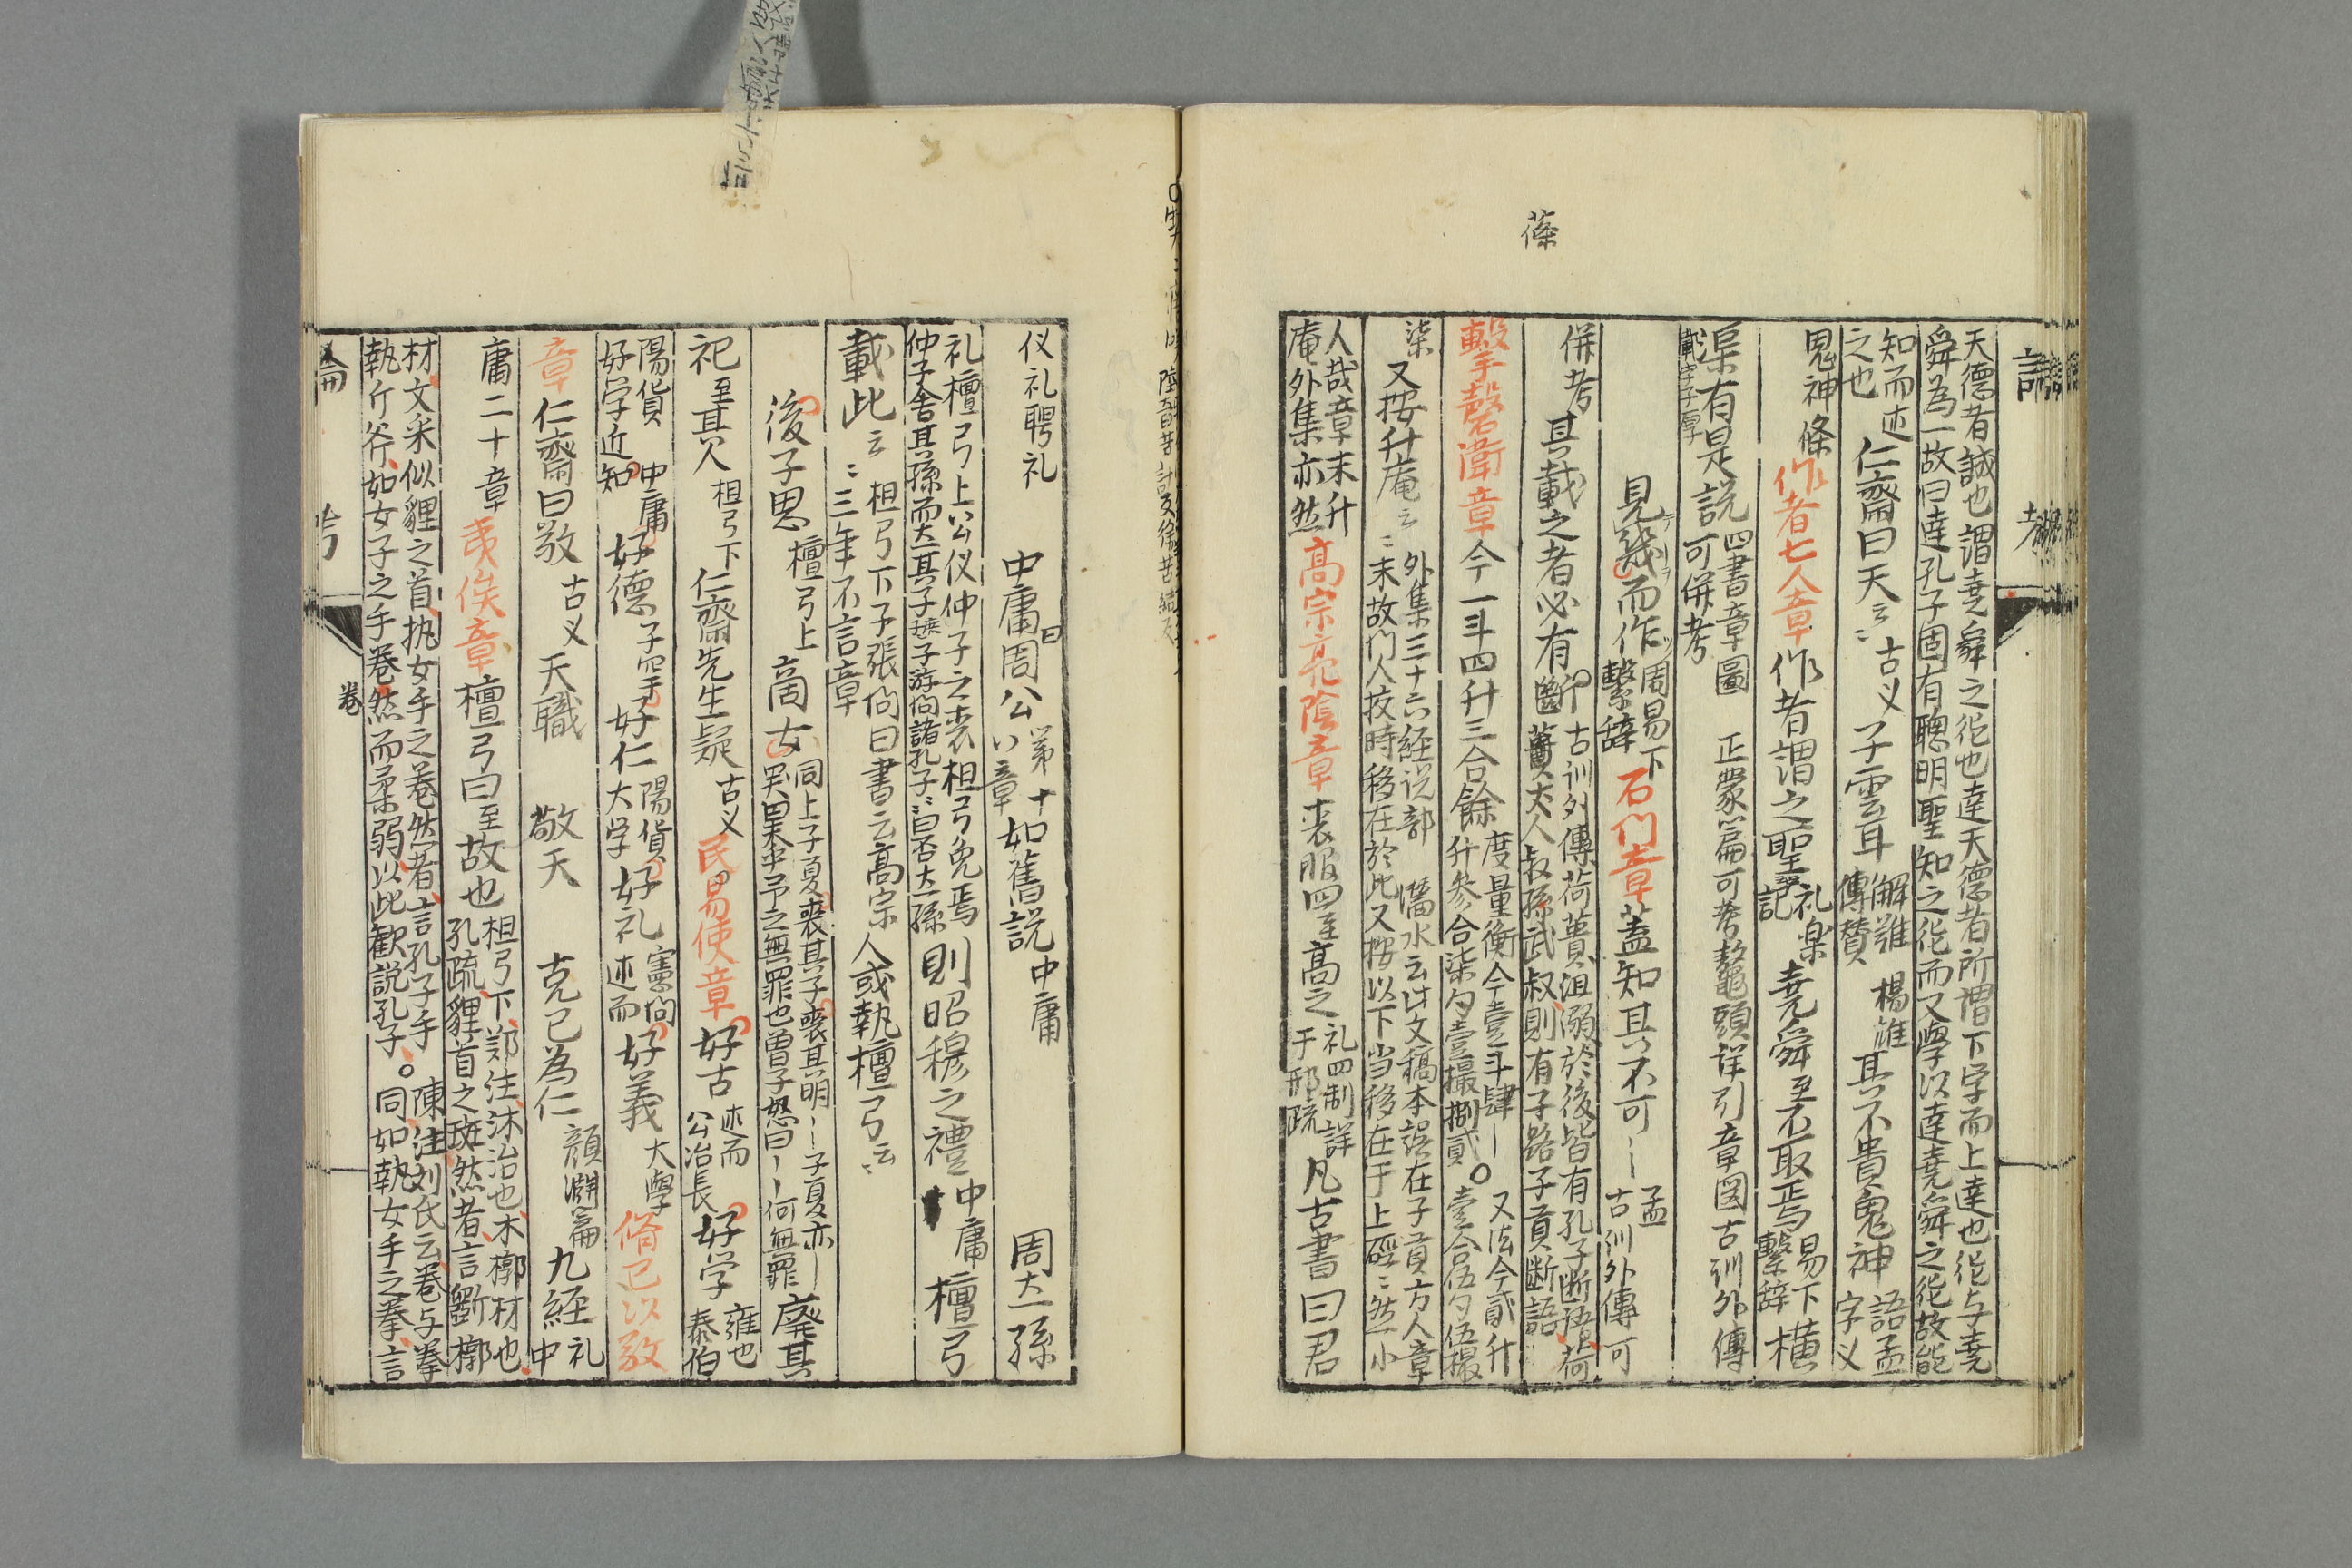 篠
天德者誠也謂堯舜之徳也達天德者所謂下学而上達也徳与堯
舜為一故曰達孔子固有聰明聖知之徳而又學以達堯舜之徳故能
知而述
之也
仁齋曰天云〻
古义
子雲耳
解難
傳贊
楊雄
其不貴鬼神
語孟
字义
鬼神條
作者七人章
作者謂之聖
礼楽
記
堯舜至不取焉
易下
繫辞
横
渠有是説
載字子厚
四書章圖
可併考
正蒙篇可考鼇頭詳引章図古訓外傳
見幾而作
周易下
繫辞
石門章
蓋知其不可〻
孟
古訓外傳可
併考
其載之者必有斷
古訓外傳荷蕢沮溺於後皆有孔子断語荷
蕢丈人叔孫武叔則有子路子貢断語
擊磬衛章
今一斗四升三合餘
度量衡今壹斗肆
升参合柒勺壹撮捌貳。
又法今貳升
壹合伍勺伍撮
柒
又按升庵云〻
外集三十六経説部
末故们人按時移在於此又按以下当移在于上硜〻然小
灊水云此文稿本誤在子貢方人章
人哉章末升
庵外集亦然
高宗亮陰章
丧服四至高之
礼四制詳
于邢疏
凡古書曰君
仪礼聘礼
中庸曰周公
第十
八章
如舊説
中庸
周太孫
礼檀弓上公仪仲子之丧檀弓免焉
仲子舍其孫而立其子游問諸孔子〻曰否立孫
則昭穆之禮
中庸
檀弓
載此云〻
檀弓下子張問曰書云高宗
三年不言章
人或執檀弓云〻
後子思
檀弓上
商女
同上子夏喪其子喪其明〻子夏亦〻
哭曰天乎予之無罪也曽子怒曰〻何無罪
廢其
祀至其人
檀弓下
仁齋先生疑
古义
民易使章
好古
述而
公冶長
好学
雍也
泰伯
陽貨
好学近知
中庸
好德
子罕
好仁
陽貨
大学
好礼
憲问
述而
好義
大學
脩己以敬
章
仁齋曰敬
古义
天職
敬天
克己為仁
顔淵篇
九経
礼
中
庸二十章
夷俟章
檀弓曰至故也
檀弓下鄭注沐治也木槨材也
孔疏貍首之斑然者言斲槨
材文采似貍之首執女手之卷然者言孔子手
執斤斧如女子之手卷然而柔弱以此歓説孔子。
陳注刘氏云卷与拳
同如執女手之拳言
卷
論
考